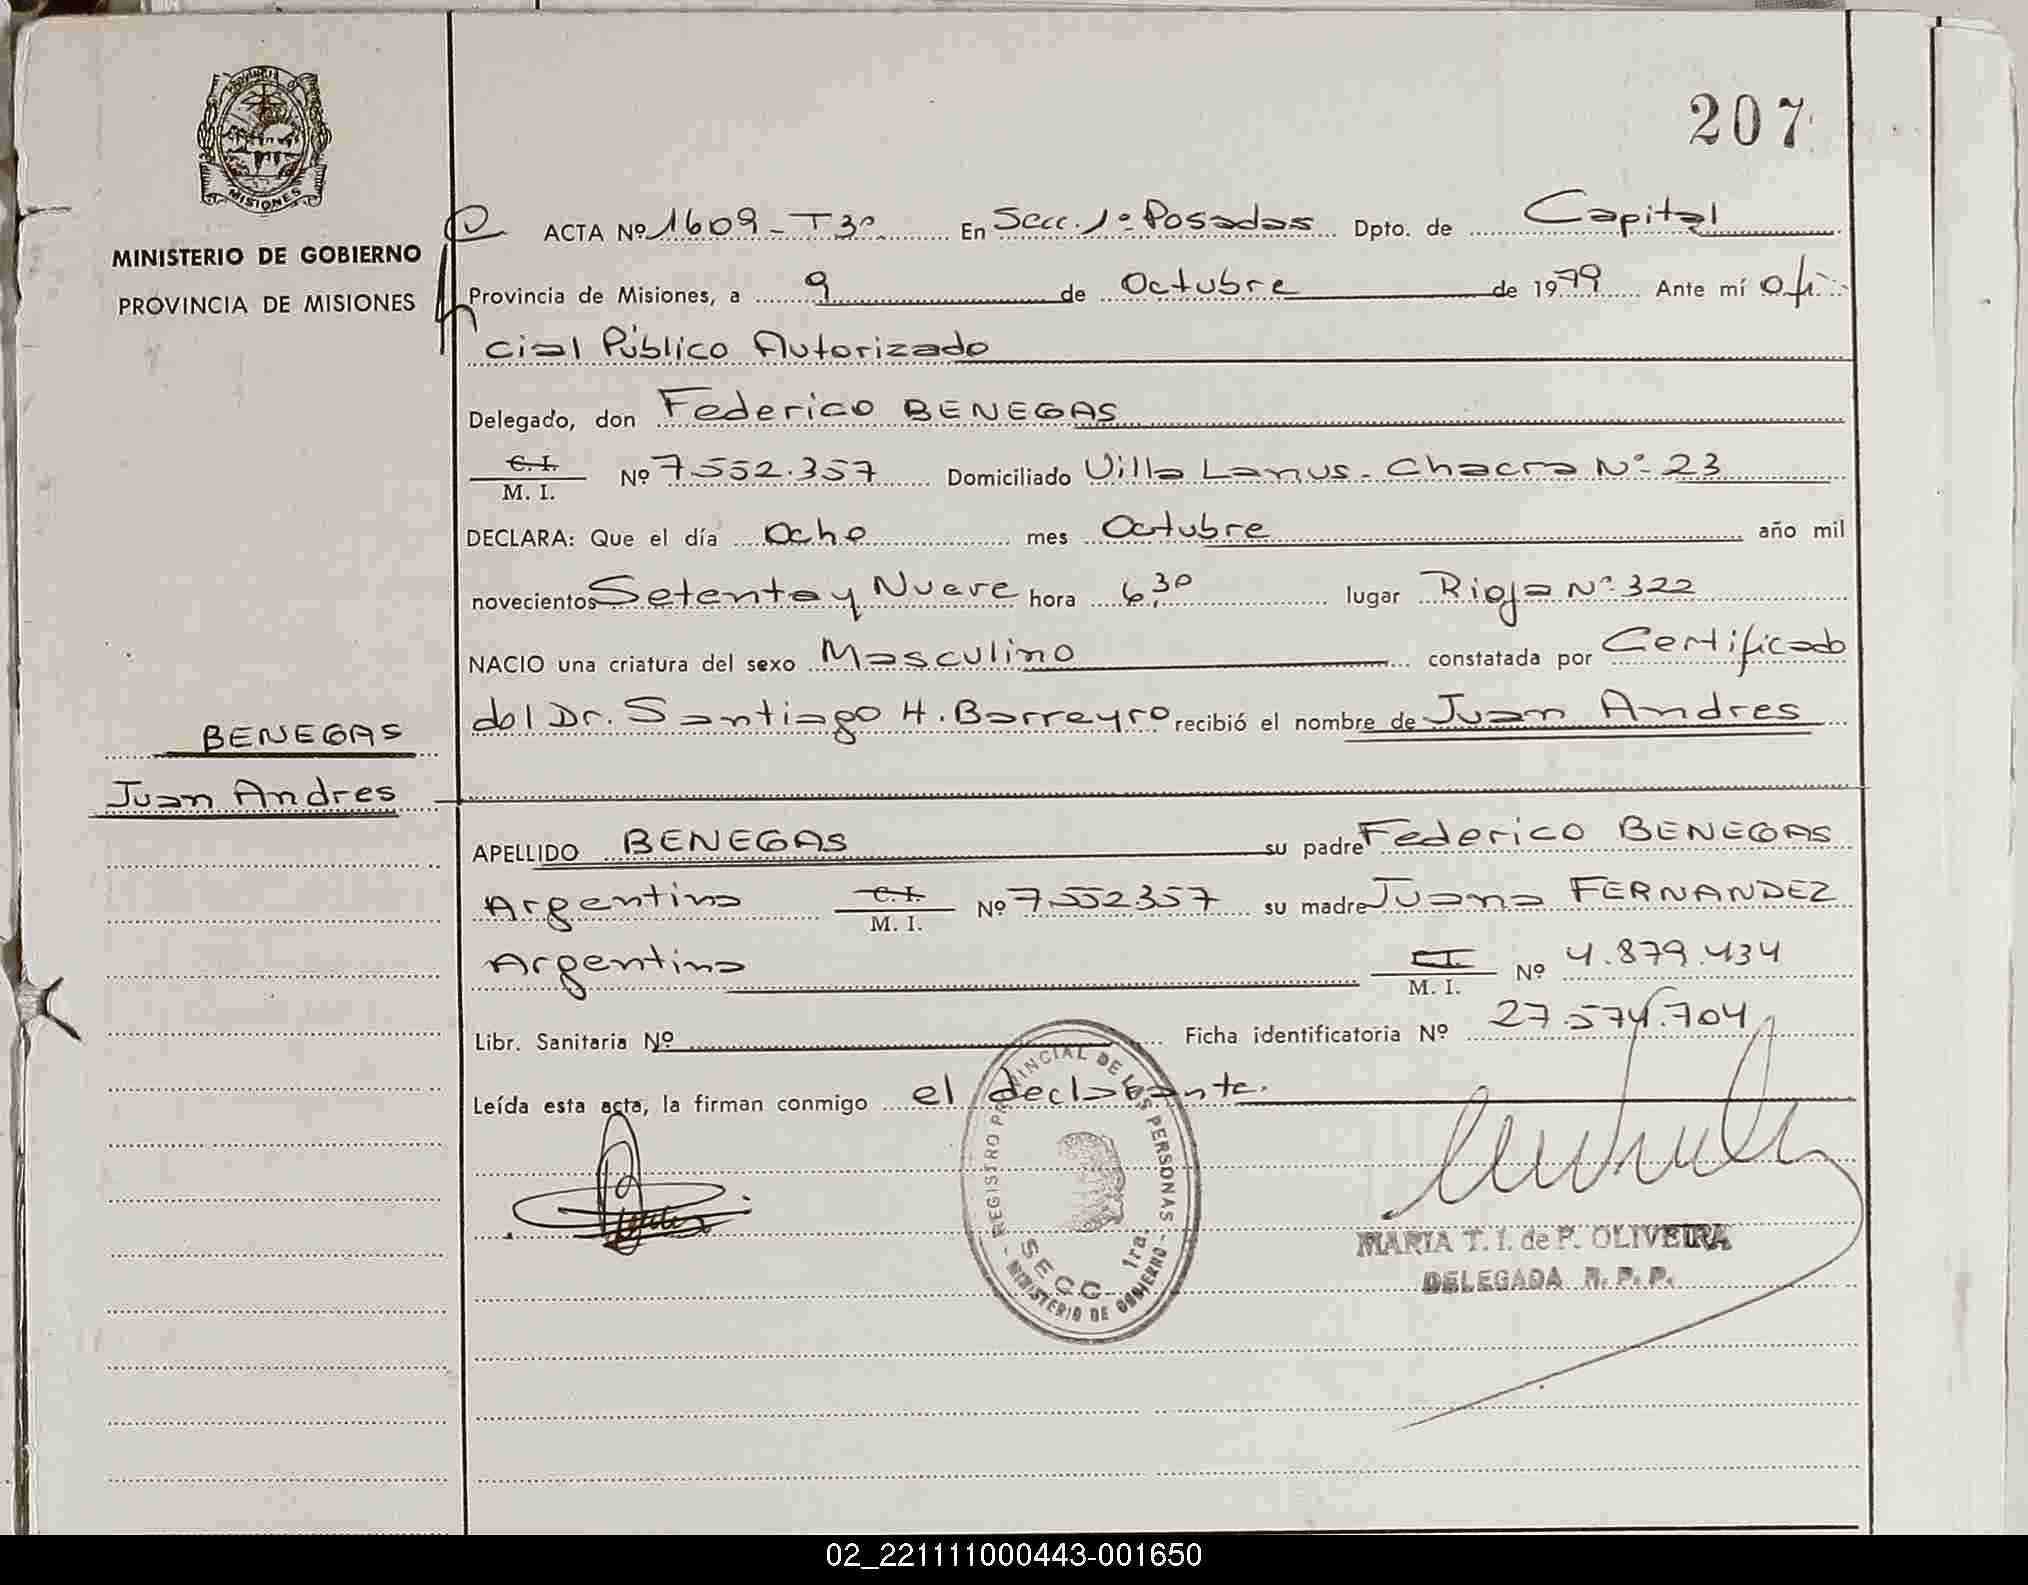 207
PROVINCIA D
MISIONES
MINISTERIO DE GOBIERNO
PROVINCIA DE MISIONES
ACTA Nº 1609 - T3º En Secc. 1º Posadas Dpto. de Capital
Provincia de Misiones, a 9 de Octubre de 1979 Ante mí Ofi
cial Público Autorizado
Delegado, don Federico BENEGAS
C. I.
M. I. Nº 7.552.357 Domiciliado Villa Lanus - Chacra Nº 23
DECLARA: Que el día Ocho mes Octubre año mil
novecientos Setenta y Nueve hora 6,30 lugar Rioja Nº 322
NACIO una criatura del sexo Masculino constatada por Certificado
del Dr. Santiago H. Barreyro recibió el nombre de Juan Andres
BENEGAS
Juan Andres
APELLIDO BENEGAS su padre Federico BENEGAS
Argentino C. I. M. I. Nº 7.552357 su madre Juana FERNANDEZ
Argentina C.I. M. I. Nº 4.879.434
Libr. Sanitaria Nº Ficha identificatoria Nº 27.574.704
Leída esta acta, la firman conmigo el declarante.
REGISTRO PROVINCIAL DE LAS PERSONAS
SECC. 1ra.
- MINISTERIO DE GOBIERNO -
MARIA T. I. de P. OLIVEIRA
DELEGADA R. P. P.
02_221111000443-001650